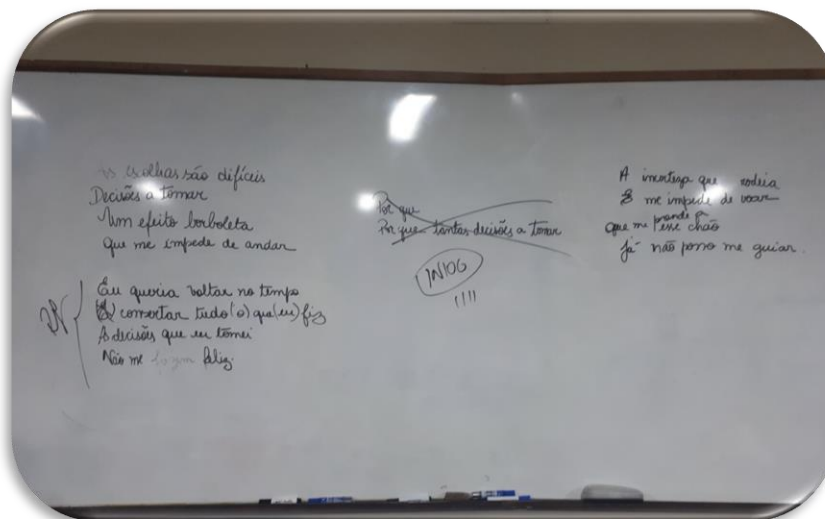 As escolhas são difíceis
Decisões a tomar
Um efeito borboleta
que me impede de andar
Eu queria voltar no tempo
consertar tudo (o) que (eu) fiz
A decisões que eu tomei
Não me fazem feliz.
Por que
Por que tantas decisões a tomar
A incerteza que rodeia
me impede de voar
que me prende a esse chão
já não posso me guiar.